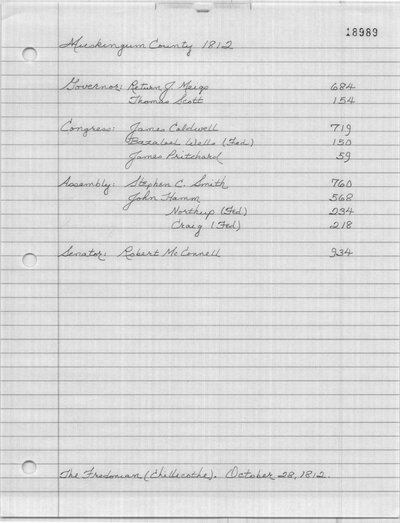 18989
Muskingum County 1812
Governor: Return J Meigs 684
Thomas Scott 154
Congress: James Caldwell 719
Bazaleel Wells (Fed) 150
James Pritchard 59
Assembly: Stephen C. Smith 760
John Hamm 568
Northup (Fed) 234
Craig (Fed) 218
Senator: Robert McConnell 934
The Fredonian (Chillicothe). October 28, 1812.